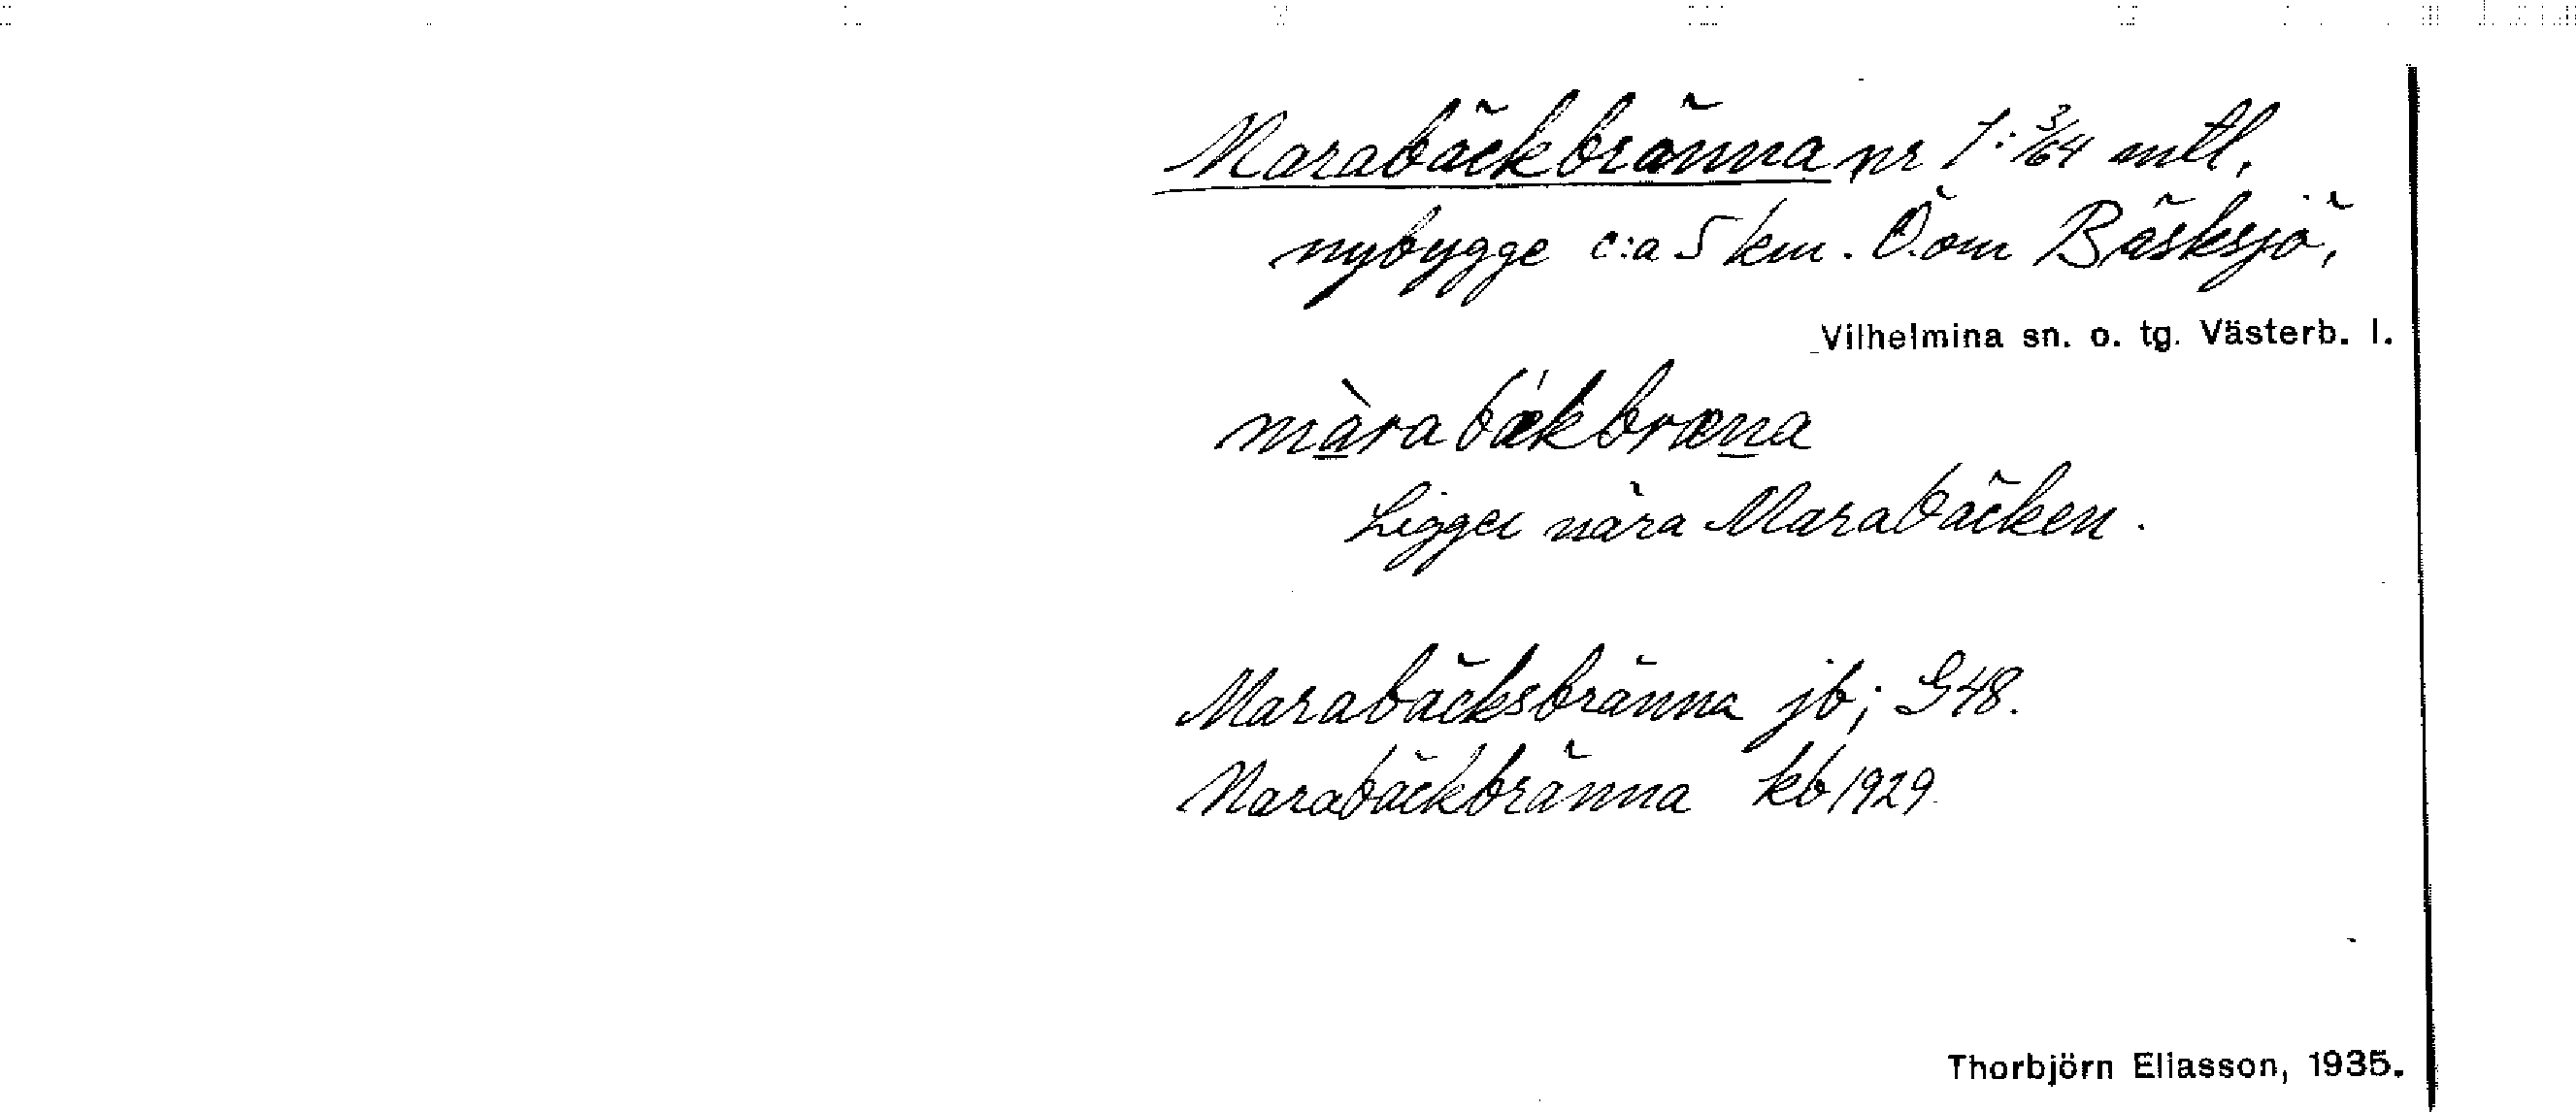 Marabäckbränna nr 1: 3/64 mtl,
nybygge c:a 5 km. Ö.om Bäsksjö,
Vilhelmina sn. o. tg. Västerb. l.
màrabækbræna
Ligger nära Marabäcken.
Marabäcksbränna jb; G48.
Marabäckbränna kb 1929.
Thorbjörn Eliasson, 1935.